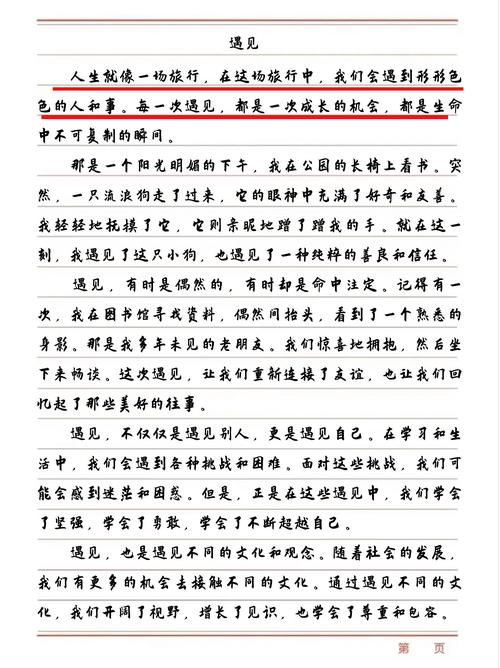 遇见
人生就像一场旅行，在这场旅行中，我们会遇到形形色
色的人和事。每一次遇见，都是一次成长的机会，都是生命
中不可复制的瞬间。
那是一个阳光明媚的下午，我在公园的长椅上看书。突
然，一只流浪狗走了过来，它的眼神中充满了好奇和友善。
我轻轻地抚摸了它，它则亲昵地蹭了蹭我的手。就在这一
刻，我遇见了这只小狗，也遇见了一种纯粹的善良和信任。
遇见，有时是偶然的，有时却是命中注定。记得有一
次，我在图书馆寻找资料，偶然间抬头，看到了一个熟悉的
身影。那是我多年未见的老朋友。我们惊喜地拥抱，然后坐
下来畅谈。这次遇见，让我们重新连接了友谊，也让我们回
忆起了那些美好的往事。
遇见，不仅仅是遇见别人，更是遇见自己。在学习和生
活中，我们会遇到各种挑战和困难。面对这些挑战，我们可
能会感到迷茫和困惑。但是，正是在这些遇见中，我们学会
了坚强，学会了勇敢，学会了不断超越自己。
遇见，也是遇见不同的文化和观念。随着社会的发展，
我们有更多的机会去接触不同的文化。通过遇见不同的文
化，我们开阔了视野，增长了见识，也学会了尊重和包容。
第 页